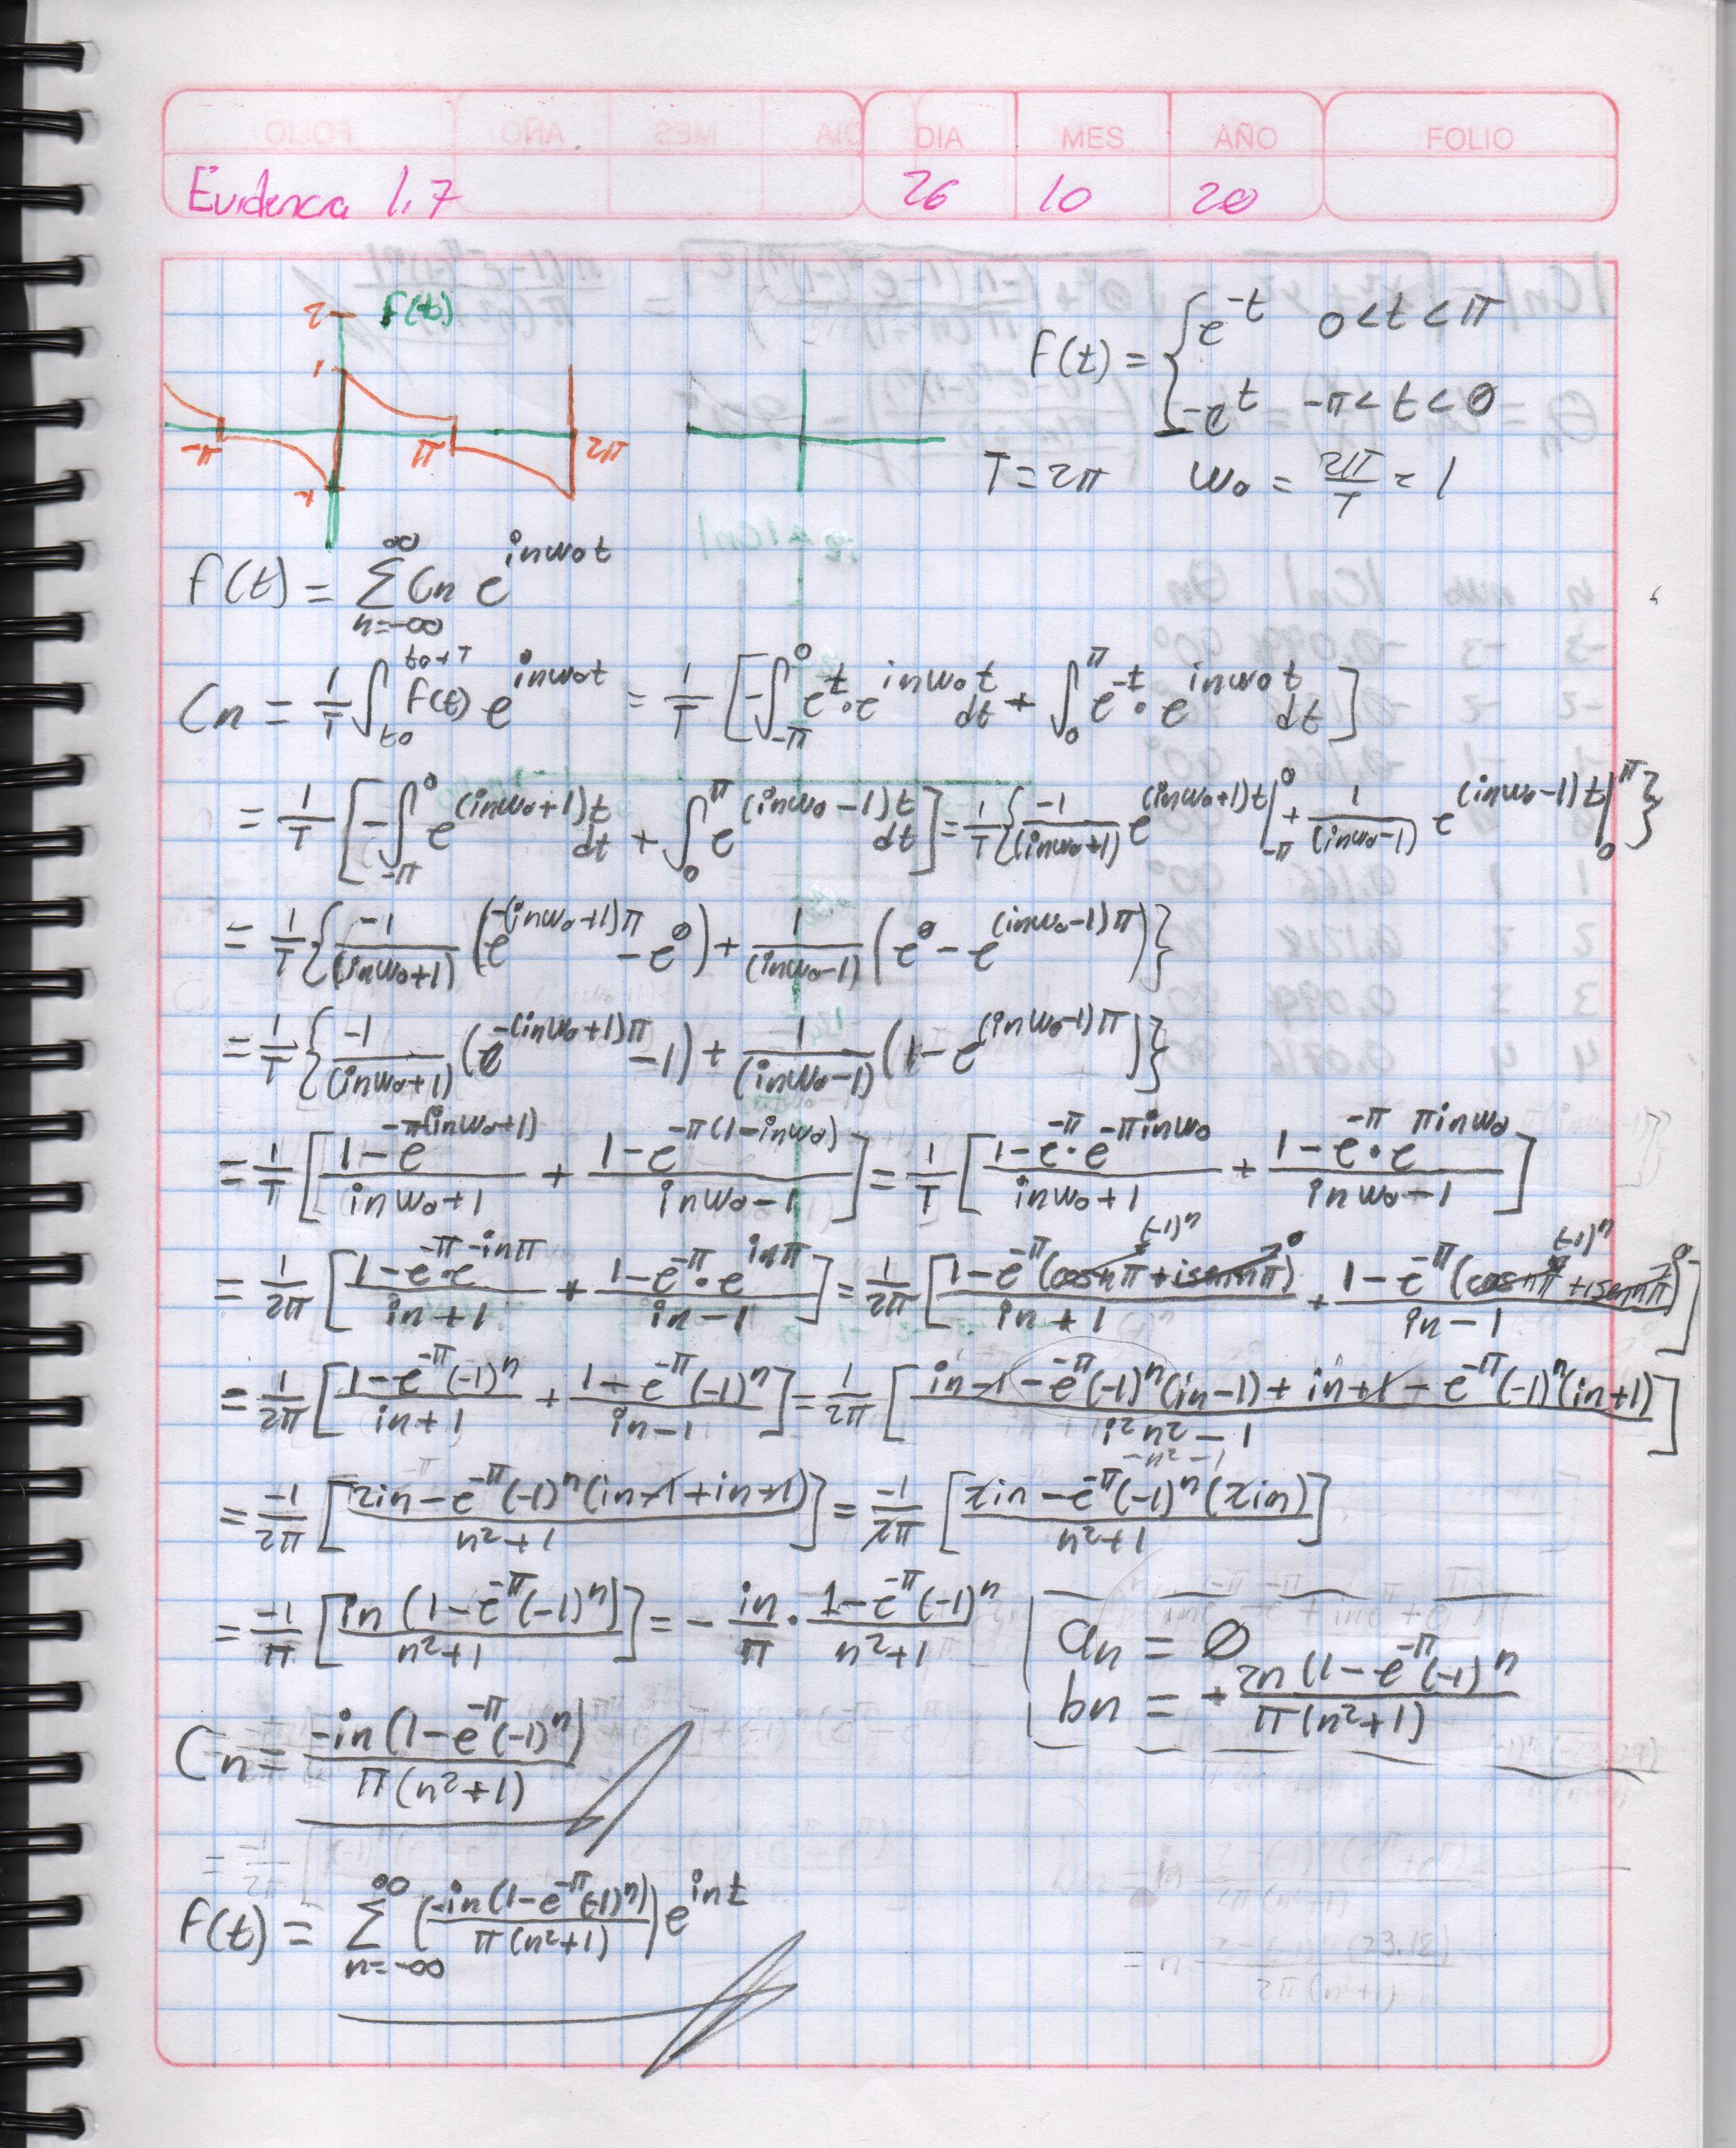 DIA MES AÑO FOLIO
Evidencia 1.7 26 10 20
2 f(t)
1
-π π 2π
-1
f(t) = { e^{-t} 0<t<π
-e^{t} -π<t<0
T=2π w₀ = 2π/T = 1
f(t) = Σ_{n=-∞}^{∞} Cn e^{inw₀t}
Cn = 1/T ∫_{t₀}^{t₀+T} f(t) e^{inw₀t} = 1/T [-∫_{-π}^{0} e^{t}·e^{inw₀t} dt + ∫_{0}^{π} e^{-t}·e^{inw₀t} dt]
= 1/T [-∫_{-π}^{0} e^{(inw₀+1)t} dt + ∫_{0}^{π} e^{(inw₀-1)t} dt] = 1/T {-1/(inw₀+1) e^{(inw₀+1)t}|_{-π}^{0} + 1/(inw₀-1) e^{(inw₀-1)t}|_{0}^{π}}
= 1/T {-1/(inw₀+1) (e^{-(inw₀+1)π} - e^{0}) + 1/(inw₀-1) (e^{0} - e^{(inw₀-1)π})}
= 1/T {-1/(inw₀+1) (e^{-(inw₀+1)π} -1) + 1/(inw₀-1) (1-e^{(inw₀-1)π})}
= 1/T [(1-e^{-π(inw₀+1)})/(inw₀+1) + (1-e^{-π(1-inw₀)})/(inw₀-1)] = 1/T [(1-e^{-π}·e^{-πinw₀})/(inw₀+1) + (1-e^{-π}·e^{πinw₀})/(inw₀-1)]
= 1/2π [(1-e^{-π}·e^{-inπ})/(in+1) + (1-e^{-π}·e^{inπ})/(in-1)] = 1/2π [(1-e^{-π}(cosnπ (-1)^n + isennπ 0))/(in+1) + (1-e^{-π}(cosnπ (-1)^n + isennπ 0))/(in-1)]
= 1/2π [(1-e^{-π}(-1)^n)/(in+1) + (1-e^{-π}(-1)^n)/(in-1)] = 1/2π [(in-1-e^{-π}(-1)^n(in-1) + in+1 - e^{-π}(-1)^n(in+1))/(i²n²-1)]
-n²-1
= -1/2π [(2in-e^{-π}(-1)^n(in-1+in+1))/(n²+1)] = -1/2π [(2in-e^{-π}(-1)^n(2in))/(n²+1)]
= -1/π [(in(1-e^{-π}(-1)^n))/(n²+1)] = -in/π · (1-e^{-π}(-1)^n)/(n²+1)
an = 0
bn = + 2n(1-e^{-π}(-1)^n/(π(n²+1))
Cn = -in(1-e^{-π}(-1)^n)/(π(n²+1))
f(t) = Σ_{n=-∞}^{∞} (-in(1-e^{-π}(-1)^n)/(π(n²+1))) e^{int}